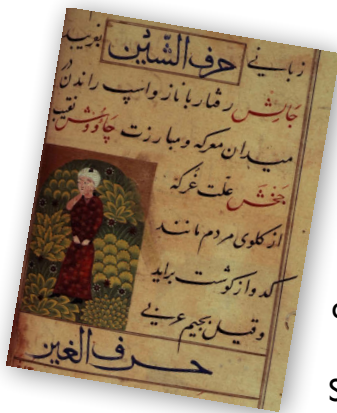 زبانی حرف الشین بخوبید
جالش رفتار با ناز و اسپ راندن در
میدان معرکه و مبارزت چاووش نقیب
جخش علت غرکه
از کلوی مردم مانند
کدو از کوشت براید
وقیل بجیم عربی
حرف الغین